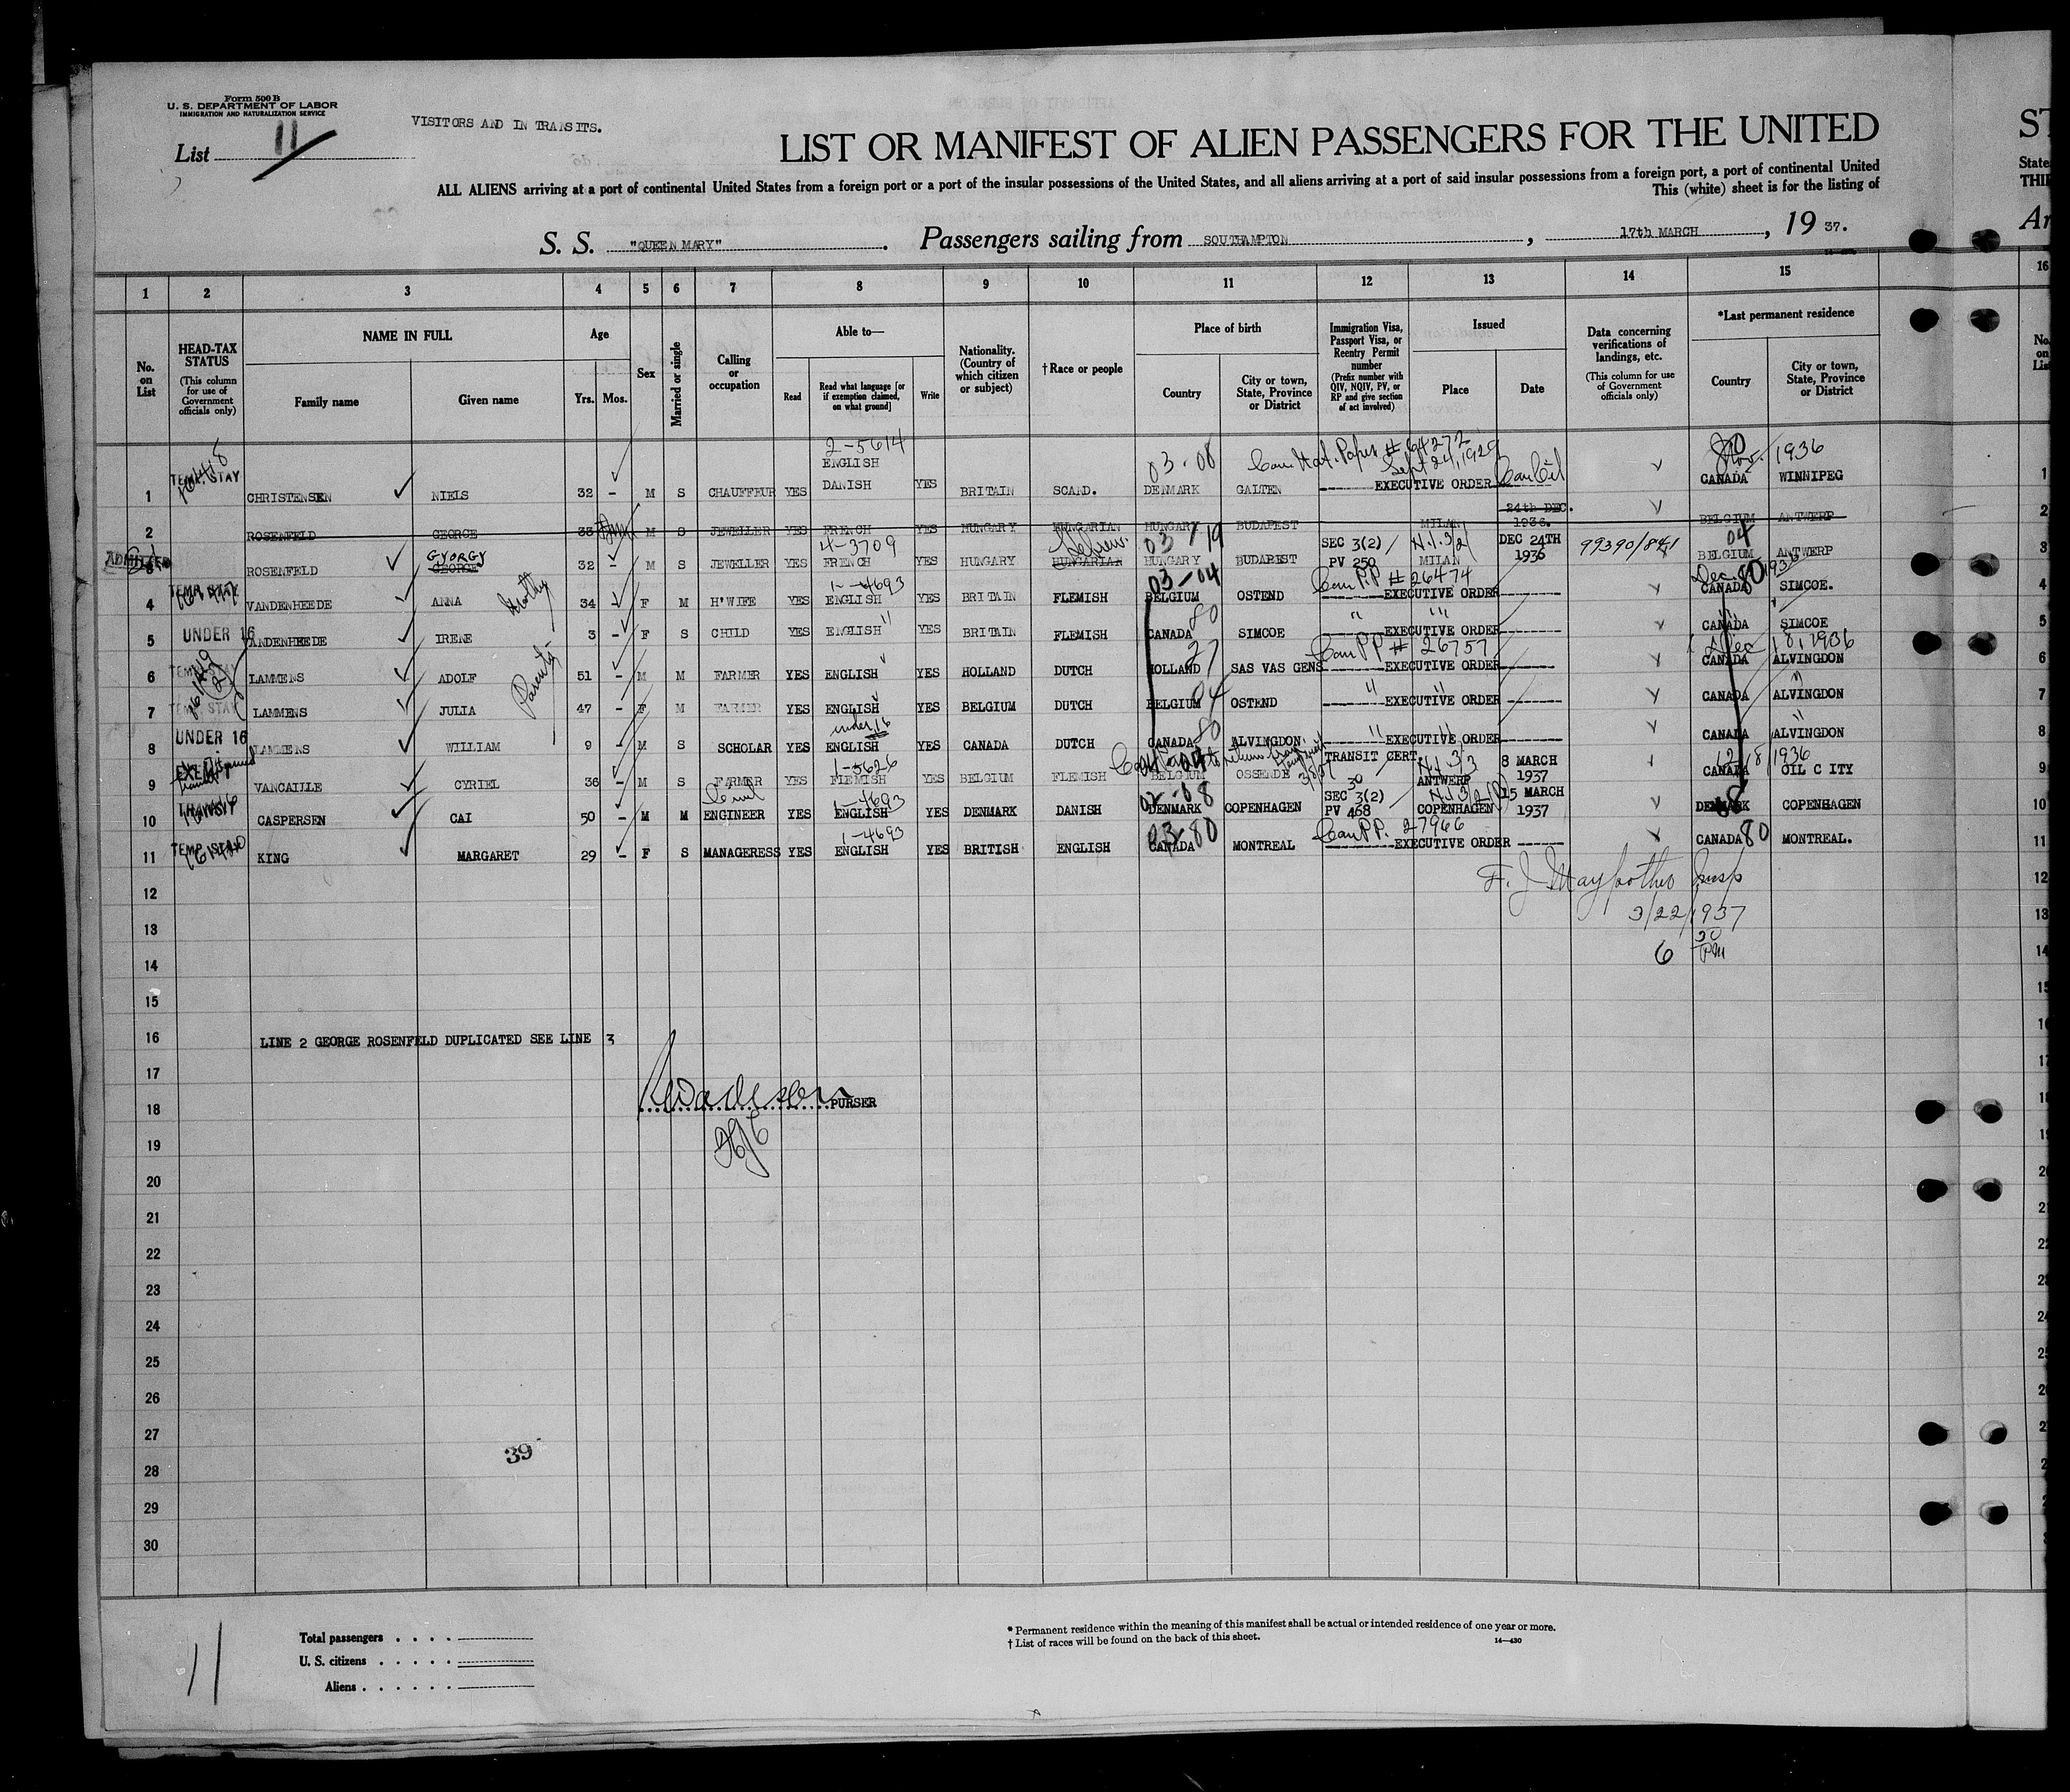 Form 500 B
U. S. DEPARTMENT OF LABOR
IMMIGRATION AND NATURALIZATION SERVICE
List 11
VISITORS AND IN TRANSITS.
LIST OR MANIFEST OF ALIEN PASSENGERS FOR THE UNITED
ALL ALIENS arriving at a port of continental United States from a foreign port or a port of the insular possessions of the United States, and all aliens arriving at a port of said insular possessions from a foreign port, a port of continental United
This (white) sheet is for the listing of
S. S. "QUEEN MARY" . Passengers sailing from SOUTHAMPTON , 17th MARCH , 19 37.
ST
State
THI
Ar
1 2 3 4 5 6 7 8 9 10 11 12 13 14 15 16
No. on List
HEAD-TAX STATUS (This column for use of Government officials only)
NAME IN FULL
Family name Given name
Age
Yrs. Mos.
Sex
Married or single
Calling or occupation
Able to—
Read Read what language [or if exemption claimed, on what ground] Write
Nationality. (Country of which citizen or subject)
† Race or people
Place of birth
Country City or town, State, Province or District
Immigration Visa, Passport Visa, or Reentry Permit number (Prefix number with QIV, NQIV, PV, or RP and give section of act involved)
Issued
Place Date
Data concerning verifications of landings, etc. (This column for use of Government officials only)
*Last permanent residence
Country City or town, State, Province or District
2-5614 03-08 Can. Nat. Paper # 64272 Sept 24, 1929 80 Nov. 1936
1 TEMP. STAY CHRISTENSEN NIELS 32 - M S CHAUFFEUR YES ENGLISH DANISH YES BRITAIN SCAND. DENMARK GALTEN EXECUTIVE ORDER CANADA WINNIPEG 1
2 ROSENFELD GEORGE 33 M S JEWELLER YES FRENCH YES HUNGARY HUNGARIAN HUNGARY BUDAPEST MILAN 24th DEC. 1936. BELGIUM ANTWERP 2
4-3709 Hebrew. 03/19 N.I. 3/2 04
3 ADMITTED ROSENFELD GYORGY GEORGE 32 - M S JEWELLER YES FRENCH YES HUNGARY HUNGARIAN HUNGARY BUDAPEST SEC 3(2) PV 250 MILAN DEC 24TH 1936 99390/841 BELGIUM ANTWERP 3
1-4693 03-04 Can P.P # 26474 Dec. 80 1936
4 TEMP. STAY VANDENHEEDE ANNA Mother 34 - F M H'WIFE YES ENGLISH YES BRITAIN FLEMISH BELGIUM OSTEND EXECUTIVE ORDER CANADA SIMCOE. 4
5 UNDER 16 VANDENHEEDE IRENE 3 - F S CHILD YES ENGLISH YES BRITAIN FLEMISH CANADA 80 SIMCOE EXECUTIVE ORDER CANADA SIMCOE 5
Can PP # 26757 Dec 18, 1936
6 TEMP. STAY LAMMENS ADOLF Parents 51 - M M FARMER YES ENGLISH YES HOLLAND DUTCH HOLLAND 27 SAS VAS GENS EXECUTIVE ORDER CANADA ALVINGDON 6
7 TEMP. STAY LAMMENS JULIA 47 - F M FARMER YES ENGLISH YES BELGIUM DUTCH BELGIUM 04 OSTEND EXECUTIVE ORDER CANADA ALVINGDON 7
under 16
8 UNDER 16 LAMMENS WILLIAM 9 - M S SCHOLAR YES ENGLISH YES CANADA DUTCH CANADA 80 ALVINGDON EXECUTIVE ORDER CANADA ALVINGDON 8
1-5626 N.I 3/3 12/8/1936
9 EXEMPT VANCAILLE CYRIEL 36 - M S FARMER YES FLEMISH YES BELGIUM FLEMISH BELGIUM OSSENDE TRANSIT CERT. 30 ANTWERP 8 MARCH 1937 CANADA OIL C ITY 9
Civil 1-4693 02-08
10 TRANSIT CASPERSEN CAI 50 - M M ENGINEER YES ENGLISH YES DENMARK DANISH DENMARK COPENHAGEN SEC 3(2) PV 468 COPENHAGEN 15 MARCH 1937 DENMARK COPENHAGEN 10
1-4693 03-80 Can P.P. 27966
11 TEMP. STAY KING MARGARET 29 - F S MANAGERESS YES ENGLISH YES BRITISH ENGLISH CANADA MONTREAL EXECUTIVE ORDER CANADA 80 MONTREAL. 11
12 12
3/22/1937
13 13
6 30 PM
14 14
15 15
16 LINE 2 GEORGE ROSENFELD DUPLICATED SEE LINE 3
17
18 PURSER
19
20
21
22
23
24
25
26
27
39
28
29
30
11
Total passengers
U. S. citizens
Aliens
* Permanent residence within the meaning of this manifest shall be actual or intended residence of one year or more.
† List of races will be found on the back of this sheet.
14—430